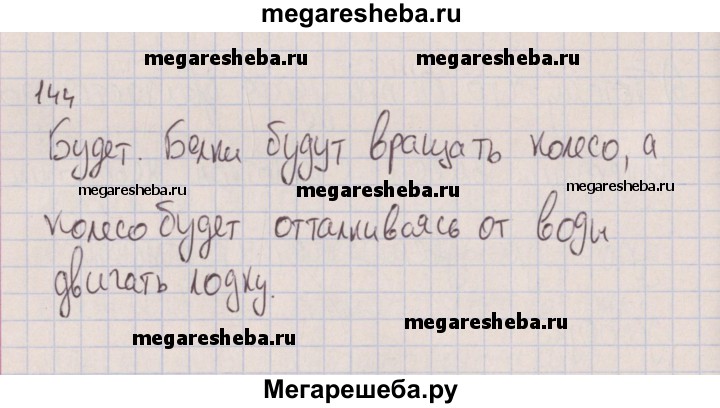 megaresheba.ru
megaresheba.ru megaresheba.ru
144
Будет. Белки будут вращать колесо, а
megaresheba.ru megaresheba.ru megaresheba.ru
колесо будет отталкиваясь от воды
двигать лодку.
megaresheba.ru megaresheba.ru
Мегарешеба.ру